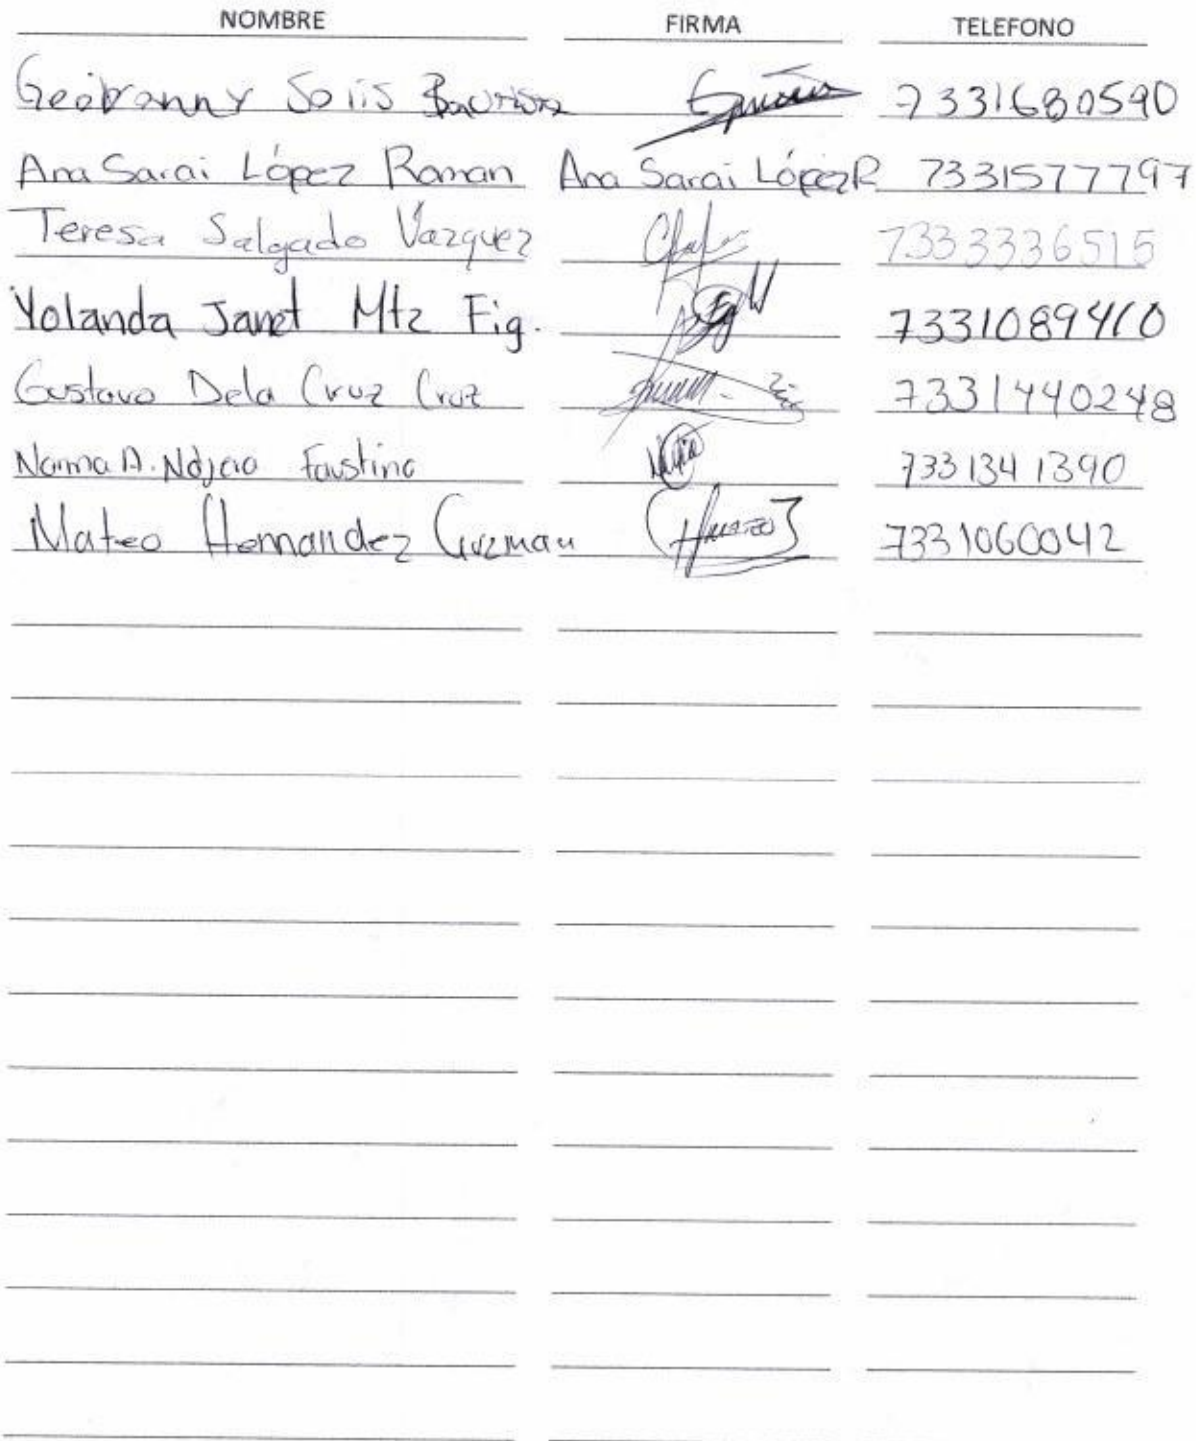 NOMBRE FIRMA TELEFONO
Geobranny Solis Bautista 7331680590
Ana Sarai López Roman Ana Sarai López R 7331577797
Teresa Salgado Vazquez 7333336515
Yolanda Janet Mtz Fig. 7331089410
Gustavo Dela Cruz Cruz 7331440248
Norma A. Faustino 733 134 1390
Mateo Hernandez Guzman 7331060042